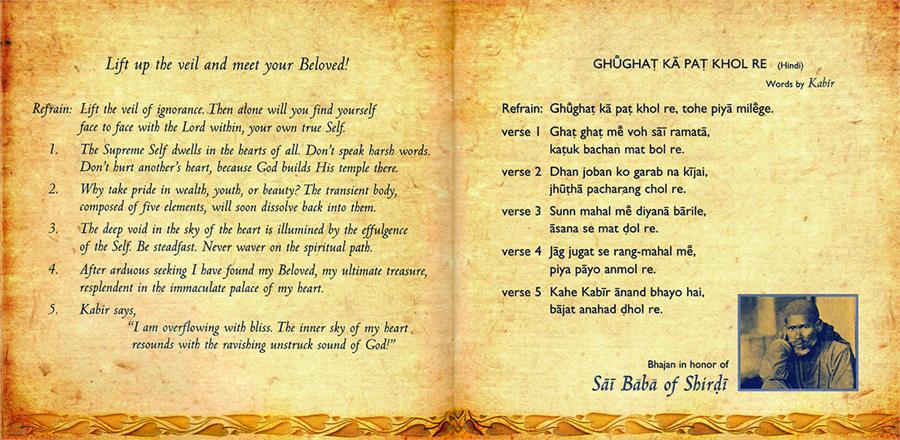 Lift up the veil and meet your Beloved!
Refrain: Lift the veil of ignorance. Then alone will you find yourself
face to face with the Lord within, your own true Self.
1. The Supreme Self dwells in the hearts of all. Don't speak harsh words.
Don't hurt another's heart, because God builds His temple there.
2. Why take pride in wealth, youth, or beauty? The transient body,
composed of five elements, will soon dissolve back into them.
3. The deep void in the sky of the heart is illumined by the effulgence
of the Self. Be steadfast. Never waver on the spiritual path.
4. After arduous seeking I have found my Beloved, my ultimate treasure,
resplendent in the immaculate palace of my heart.
5. Kabir says,
"I am overflowing with bliss. The inner sky of my heart
resounds with the ravishing unstruck sound of God!"
GHŮGHAṬ KĀ PAṬ KHOL RE (Hindi)
Words by Kabīr
Refrain: Ghůghaṭ kā paṭ khol re, tohe piyā milẽge.
verse 1 Ghaṭ ghaṭ mẽ voh sāī ramatā,
kaṭuk bachan mat bol re.
verse 2 Dhan joban ko garab na kījai,
jhūṭhā pacharang chol re.
verse 3 Sunn mahal mẽ diyanā bārile,
āsana se mat ḍol re.
verse 4 Jāg jugat se rang-mahal mẽ,
piya pāyo anmol re.
verse 5 Kahe Kabīr ānand bhayo hai,
bājat anahad ḍhol re.
Bhajan in honor of
Sāī Bābā of Shirḍī